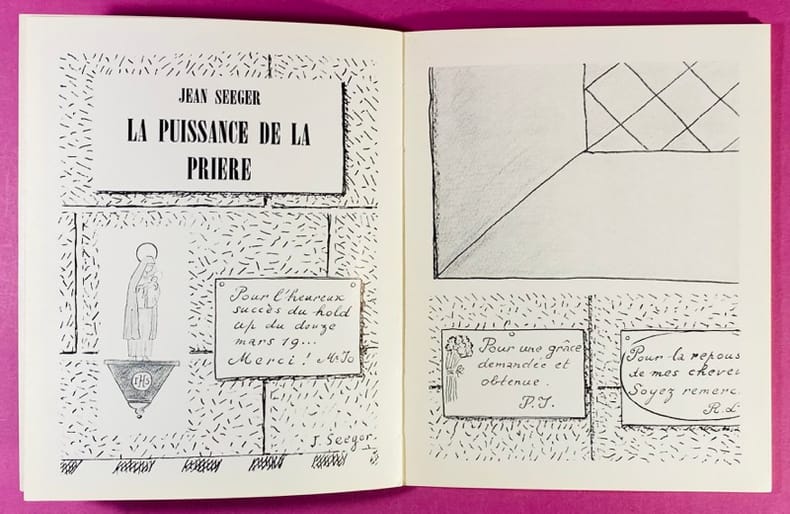 JEAN SEEGER
LA PUISSANCE DE LA
PRIERE
IHS
Pour l'heureux
succès du hold
up du douze
mars 19...
Merci! Mr Jo
J. Seeger.
Pour une grâce
demandée et
obtenue.
P.J.
Pour la repous
de mes chevei
Soyez remerc
R.L